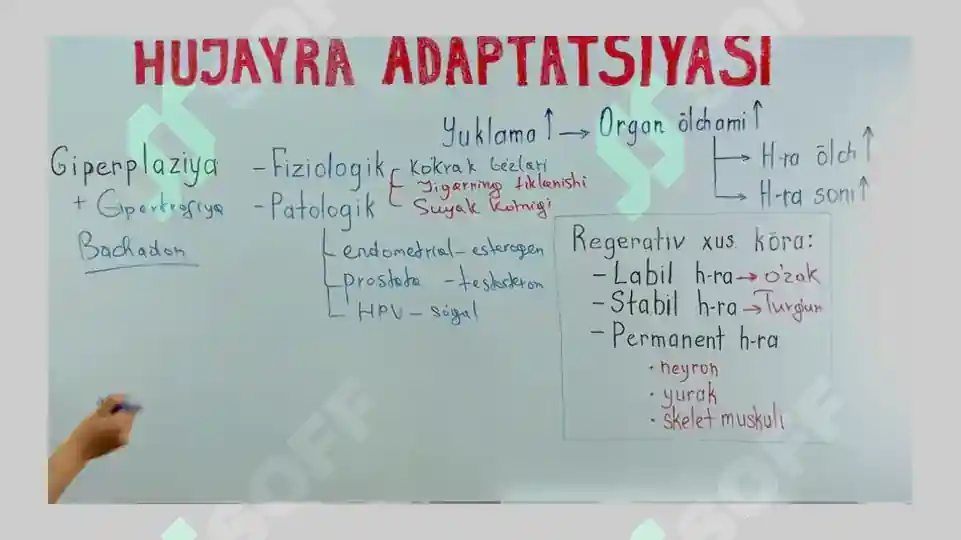 HUJAYRA ADAPTATSIYASI
Yuklama ↑ → Organ ölchami ↑
→ H-ra ölch ↑
→ H-ra soni ↑
Giperplaziya
+ Gipertrofiya
Bachadon
- Fiziologik
Kökrak bezlari
Jigarning tiklanishi
Suyak komigi
- Patologik
endometrial - esterogen
prostata - testosteron
HPV - sögal
Regerativ xus. köra:
- Labil h-ra → o'zak
- Stabil h-ra → Turg'un
- Permanent h-ra
• neyron
• yurak
• skelet muskuli
SOFF
SOFF
SOFF
SOFF